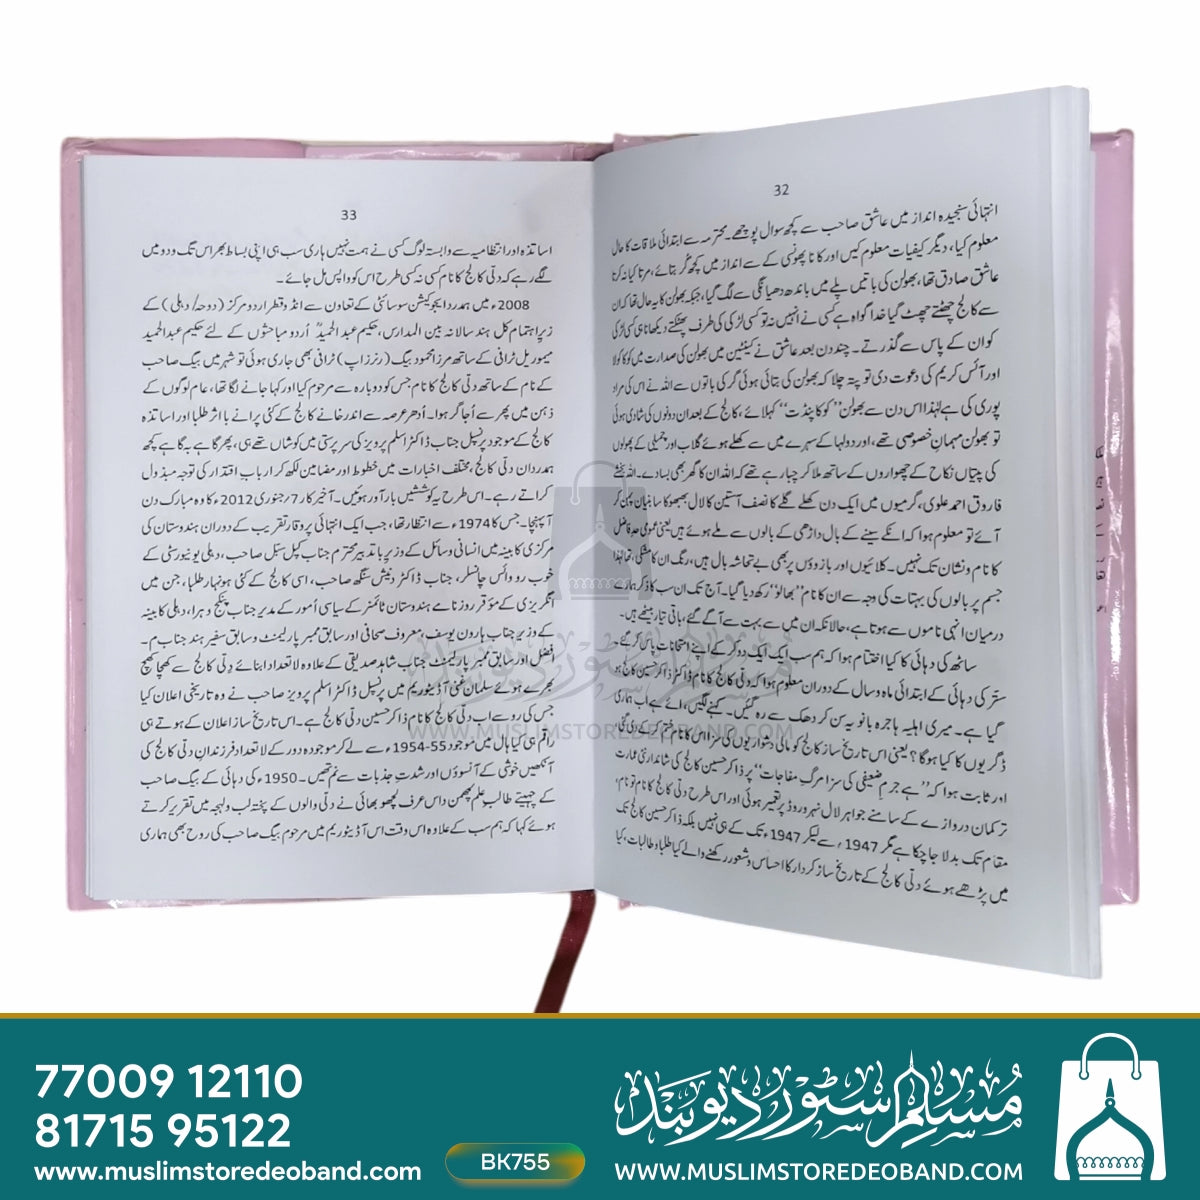 32
انتہائی سنجیدہ انداز میں عاشق صاحب سے کچھ سوال پوچھے۔ محترمہ سے ابتدائی ملاقات کا حال
معلوم کیا، دیگر کیفیات معلوم کیں اور کانا پھونسی کے سے انداز میں کچھ گُر بتائے، مرتا کیا نہ کرتا
عاشق صادق تھا، بھولن کی باتیں پلے میں باندھ دھیانگی سے لگ گیا، جبکہ بھولن کا یہ حال تھا کہ ان
سے کالج چھٹتے چھٹ گیا خدا گواہ ہے کسی نے انہیں نہ تو کسی لڑکی کی طرف پھٹکتے دیکھا نا ہی کسی لڑکی
کو ان کے پاس سے گذرتے۔ چند دن بعد عاشق نے کینٹین میں بھولن کی صدارت میں کوکا کولا
اور آئس کریم کی دعوت دی تو پتہ چلا کہ بھولن کی بتائی ہوئی گر کی باتوں سے اللہ نے اس کی مراد
پوری کی ہے لہٰذا اس دن سے بھولن ”کوکا پنڈت“ کہلائے، کالج کے بعد ان دونوں کی شادی ہوئی
تو بھولن مہمانِ خصوصی تھے، اور دولہا کے سہرے میں سے کھلے ہوئے گلاب اور چمبیلی کے پھولوں
کی پیتاں نکاح کے چھواروں کے ساتھ ملا کر چبا رہے تھے کہ اللہ ان کا گھر بھی بسا دے۔ اللہ بخشے
فاروق احمد علوی، گرمیوں میں ایک دن کھلے گلے کا نصف آستین کا لال بھبھوکا سا بنیان پہن کر
آئے تو معلوم ہوا کہ انکے سینے کے بال داڑھی کے بالوں سے ملے ہوئے ہیں یعنی عمومی حدِ فاضل
کا نام و نشان تک نہیں۔ کلائیوں اور بازوؤں پر بھی بے تحاشہ بال ہیں، رنگ ان کا مشکی، تھا لہٰذا
جسم پر بالوں کی بہتات کی وجہ سے ان کا نام ”بھالو“ رکھ دیا گیا۔ آج تک ان سب کا ذکر ہمارے
درمیان انہی ناموں سے ہوتا ہے، حالانکہ ان میں سے بہت سے آگے گئے، باقی تیار بیٹھے ہیں۔
ساٹھ کی دہائی کا کیا اختتام ہوا کہ ہم سب ایک ایک دو کر کے اپنے امتحانات پاس کر گئے۔
ستّر کی دہائی کے ابتدائی ماہ و سال کے دوران معلوم ہوا کہ دلّی کالج کا نام ڈاکٹر ذاکر حسین کالج ہو
گیا ہے۔ میری اہلیہ ہاجرہ بانو یہ سن کر دھک سے رہ گئیں۔ کہنے لگیں، ائے ہے اب ہماری
ڈگریوں کا کیا ہوگا؟ یعنی اس تاریخ ساز کالج کو مالی دشواریوں کی سزا اس کا نام ختم کر کے دی گئی
اور ثابت ہوا کہ ”ہے جرمِ ضعیفی کی سزا مرگِ مفاجات“ پر ذاکر حسین کالج کی شاندار نئی عمارت
ترکمان دروازے کے سامنے جواہر لال نہرو روڈ پر تعمیر ہوئی اور اس طرح دلّی کالج کا نام تو نام،
مقام تک بدلا جا چکا ہے مگر 1947ء سے لیکر 1947ء تک کے ہی نہیں بلکہ ذاکر حسین کالج تک
میں پڑھے ہوئے دلّی کالج کے تاریخ ساز کردار کا احساس و شعور رکھنے والے کیا طلبا و طالبات، کیا
33
اساتذہ اور انتظامیہ سے وابستہ لوگ کسی نے ہمت نہیں ہاری سب ہی اپنی بساط بھر اس تگ و دو میں
لگے رہے کہ دلّی کالج کا نام کسی نہ کسی طرح اس کو واپس مل جائے۔
2008ء میں ہمدرد ایجوکیشن سوسائٹی کے تعاون سے انڈو قطر اردو مرکز (دوحہ/دہلی) کے
زیرِ اہتمام کل ہند سالانہ بین المدارس، حکیم عبدالحمیدؒ اُردو مباحثوں کے لئے حکیم عبدالحمید
میموریل ٹرافی کے ساتھ مرزا محمود بیگ (رنرز اپ) ٹرافی بھی جاری ہوئی تو شہر میں بیگ صاحب
کے نام کے ساتھ دلّی کالج کا نام جس کو دوبارہ سے مرحوم کیا اور کہا جانے لگا تھا، عام لوگوں کے
ذہن میں پھر سے اُجاگر ہوا۔ اُدھر عرصہ سے اندر خانے کالج کے کئی پرانے با اثر طلبا اور اساتذہ
کالج کے موجود پرنسپل جناب ڈاکٹر اسلم پرویز کی سرپرستی میں کوشاں تھے ہی، پھر گاہے بہ گاہے کچھ
ہمدردان دلّی کالج، مختلف اخبارات میں خطوط اور مضامین لکھ کر اربابِ اقتدار کی توجہ مبذول
کراتے رہے۔ اس طرح یہ کوششیں بار آور ہوئیں۔ آخیر کار 7/جنوری 2012ء کا وہ مبارک دن
آ پہنچا۔ جس کا 1974ء سے انتظار تھا، جب ایک انتہائی پر وقار تقریب کے دوران ہندوستان کی
مرکزی کابینہ میں انسانی وسائل کے وزیرِ باتدبیر محترم جناب کپل سبّل صاحب، دہلی یونیورسٹی کے
خوب رو وائس چانسلر، جناب ڈاکٹر دنیش سنگھ صاحب، اسی کالج کے کئی ہونہار طلبا، جن میں
انگریزی کے مؤقر روزنامے ہندوستان ٹائمنز کے سیاسی اُمور کے مدیر جناب پنکج دہرا، دہلی کابینہ
کے وزیر جناب ہارون یوسف، معروف صحافی اور سابق ممبر پارلیمنٹ و سابق سفیر ہند جناب م۔
افضل اور سابق ممبر پارلیمنٹ جناب شاہد صدیقی کے علاوہ لا تعداد ابنائے دلّی کالج سے کھچا کھچ
بھرے ہوئے سلمان غنی آڈیٹوریم میں پرنسپل ڈاکٹر اسلم پرویز صاحب نے وہ تاریخی اعلان کیا
جس کی رو سے اب دلّی کالج کا نام ذاکر حسین دلّی کالج ہے۔ اس تاریخ ساز اعلان کے ہوتے ہی
راقم ہی کیا ہال میں موجود 55-1954ء سے لے کر موجودہ دور کے لاتعداد فرزندانِ دلّی کالج کی
آنکھیں خوشی کے آنسوؤں اور شدتِ جذبات سے نم تھیں۔ 1950ء کی دہائی کے بیگ صاحب
کے چہیتے طالبِ علم لچھمن داس عرف لچھو بھائی نے دلّی والوں کے پختہ لب و لہجہ میں تقریر کرتے
ہوئے کہا کہ ہم سب کے علاوہ اس وقت اس آڈیٹوریم میں مرحوم بیگ صاحب کی روح بھی ہماری
مسلم سٹور دیوبند
WWW.MUSLIMSTOREDEOBAND.COM
77009 12110
81715 95122
www.muslimstoredeoband.com
BK755
مسلم سٹور دیوبند
WWW.MUSLIMSTOREDEOBAND.COM